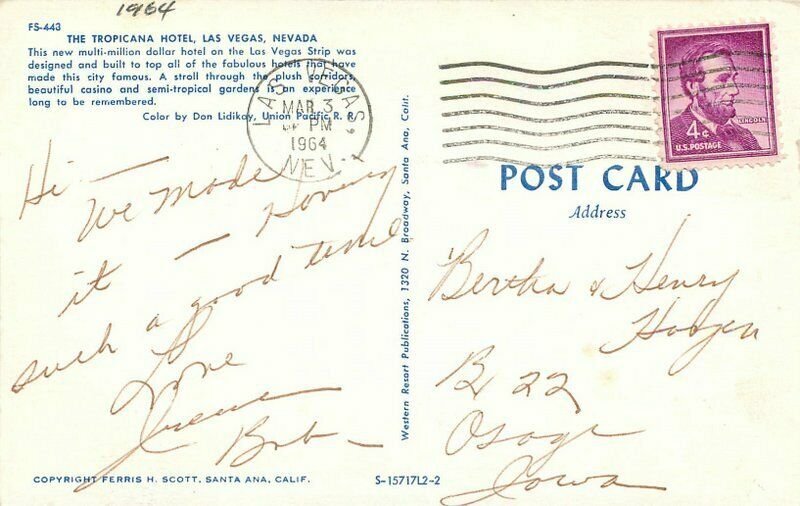 1964
FS-443
THE TROPICANA HOTEL, LAS VEGAS, NEVADA
This new multi-million dollar hotel on the Las Vegas Strip was
designed and built to top all of the fabulous hotels that have
made this city famous. A stroll through the plush corridors,
beautiful casino and semi-tropical gardens is an experience
long to be remembered.
Color by Don Lidikay, Union Pacific R. R.
LAS VEGAS,
MAR 3
PM
1964
NEV.
4¢
LINCOLN
U.S. POSTAGE
POST CARD
Address
Hi —
We made
it — Having
such a good time
Love
Irene
Bob
Western Resort Publications, 1320 N. Broadway, Santa Ana, Calif.
Bertha & Henry
Bx 22
Osage
Iowa
COPYRIGHT FERRIS H. SCOTT, SANTA ANA, CALIF.
S-15717L2-2